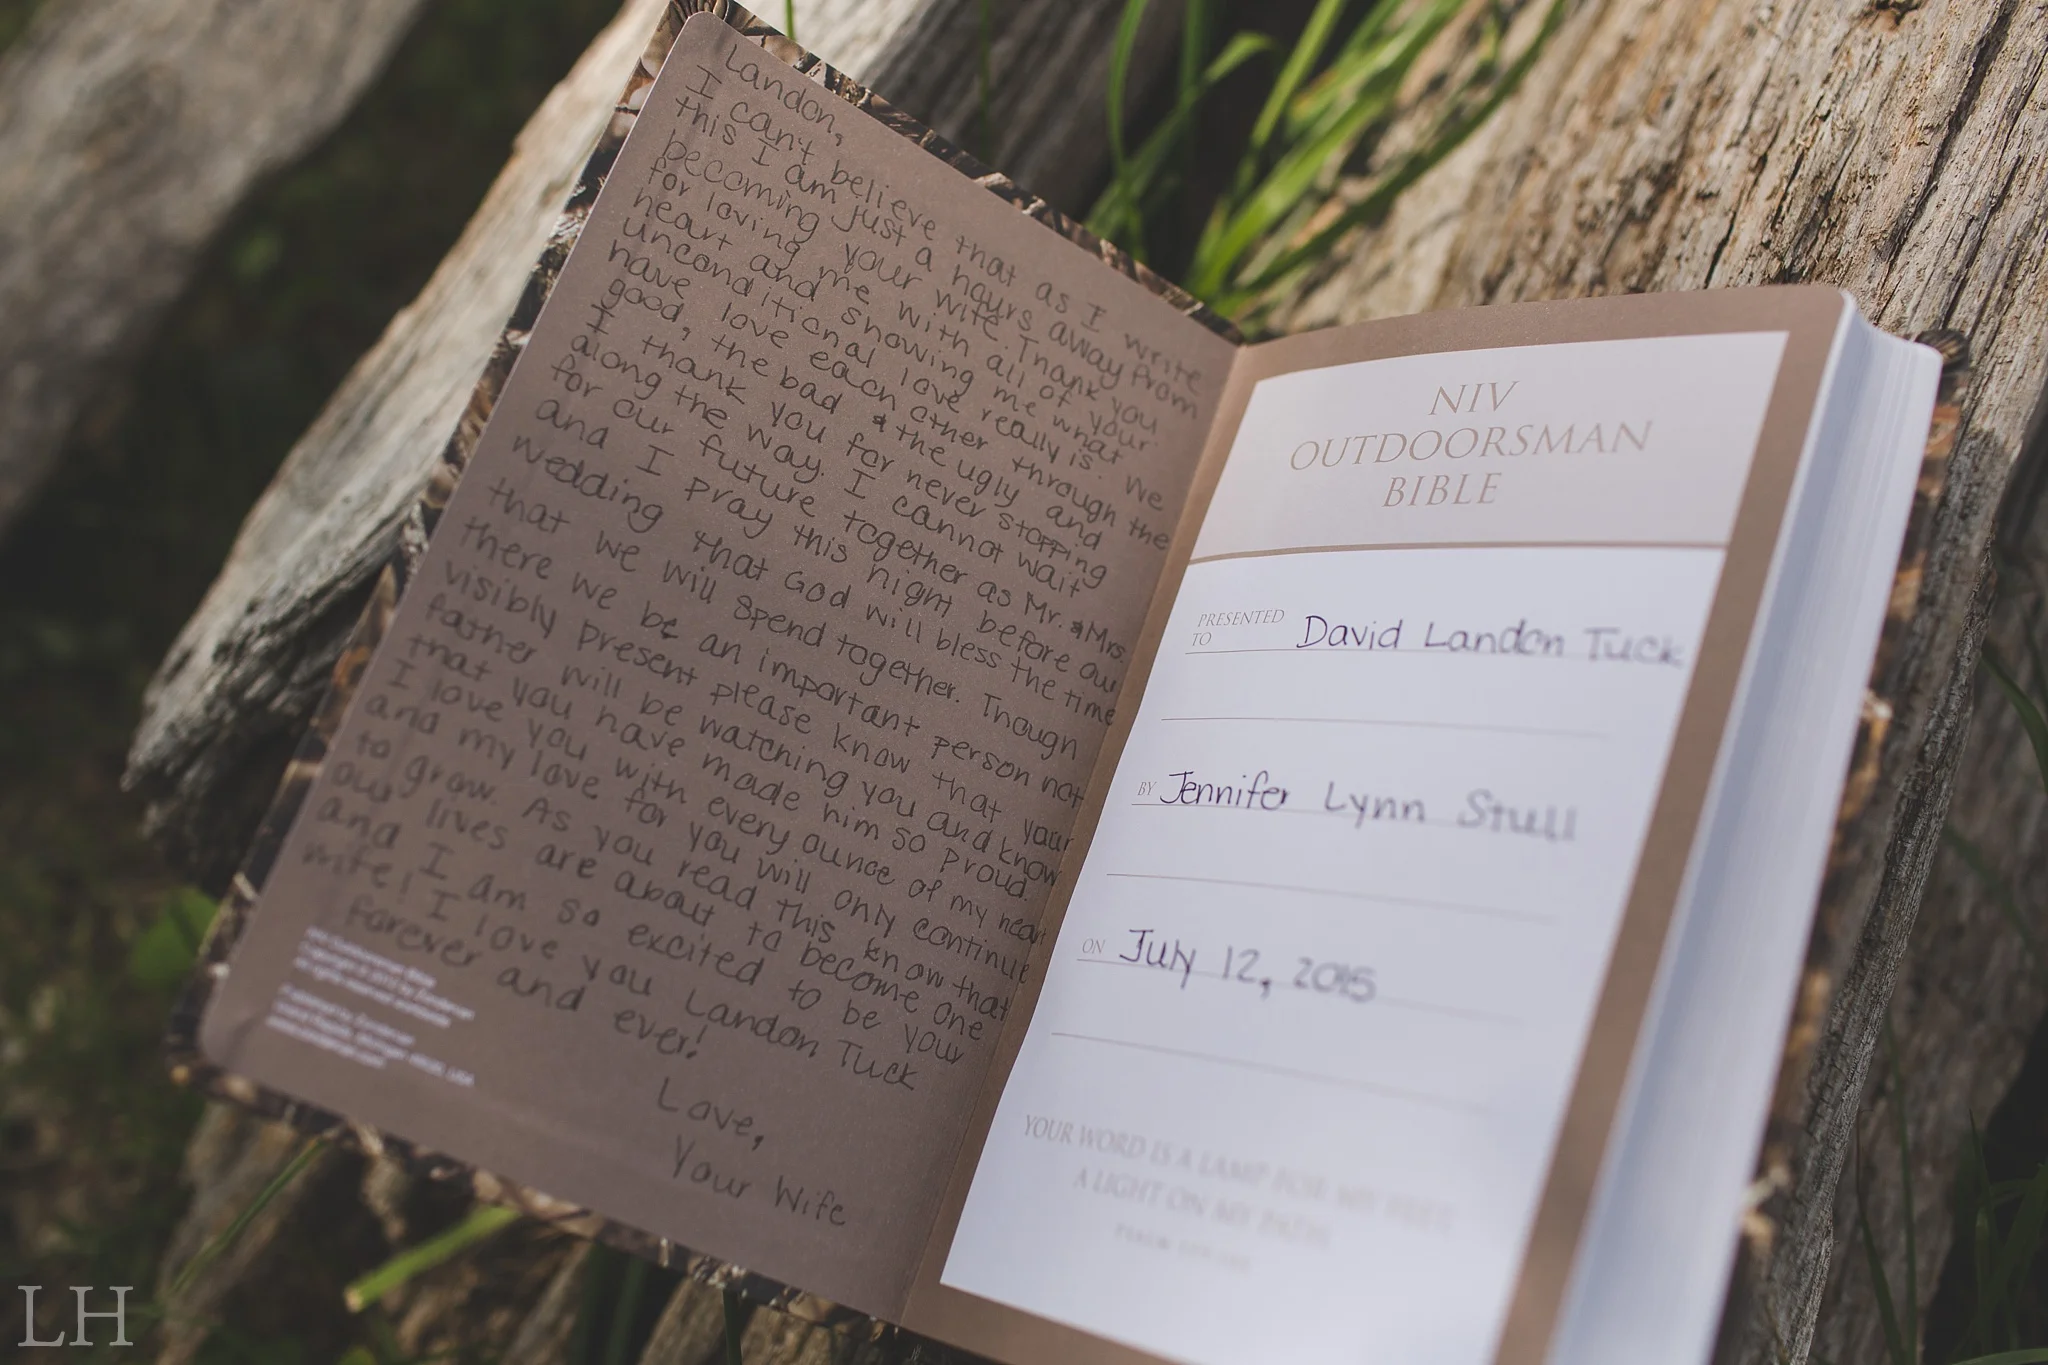 Landon,
I can't believe that as I write
this I am just a hours away from
becoming your wife. Thank you
for loving me with all of your
heart and showing me what
unconditional love really is. We
have love each other through the
good, the bad & the ugly and
I thank you for never stopping
along the way. I cannot wait
for our future together as Mr. & Mrs.
and I pray this night before our
wedding that God will bless the time
that we will spend together. Though
there we be an important person not
visibly present please know that your
father will be watching you and know
that you have made him so proud.
I love you with every ounce of my heart
and my love for you will only continue
to grow. As you read this know that
our lives are about to become one
and I am so excited to be your
wife! I love you Landon Tuck
forever and ever!
Love,
Your Wife
NIV
OUTDOORSMAN
BIBLE
PRESENTED
TO David Landon Tuck
BY Jennifer Lynn Stull
ON July 12, 2015
YOUR WORD IS A LAMP FOR MY FEET,
A LIGHT ON MY PATH.
LH